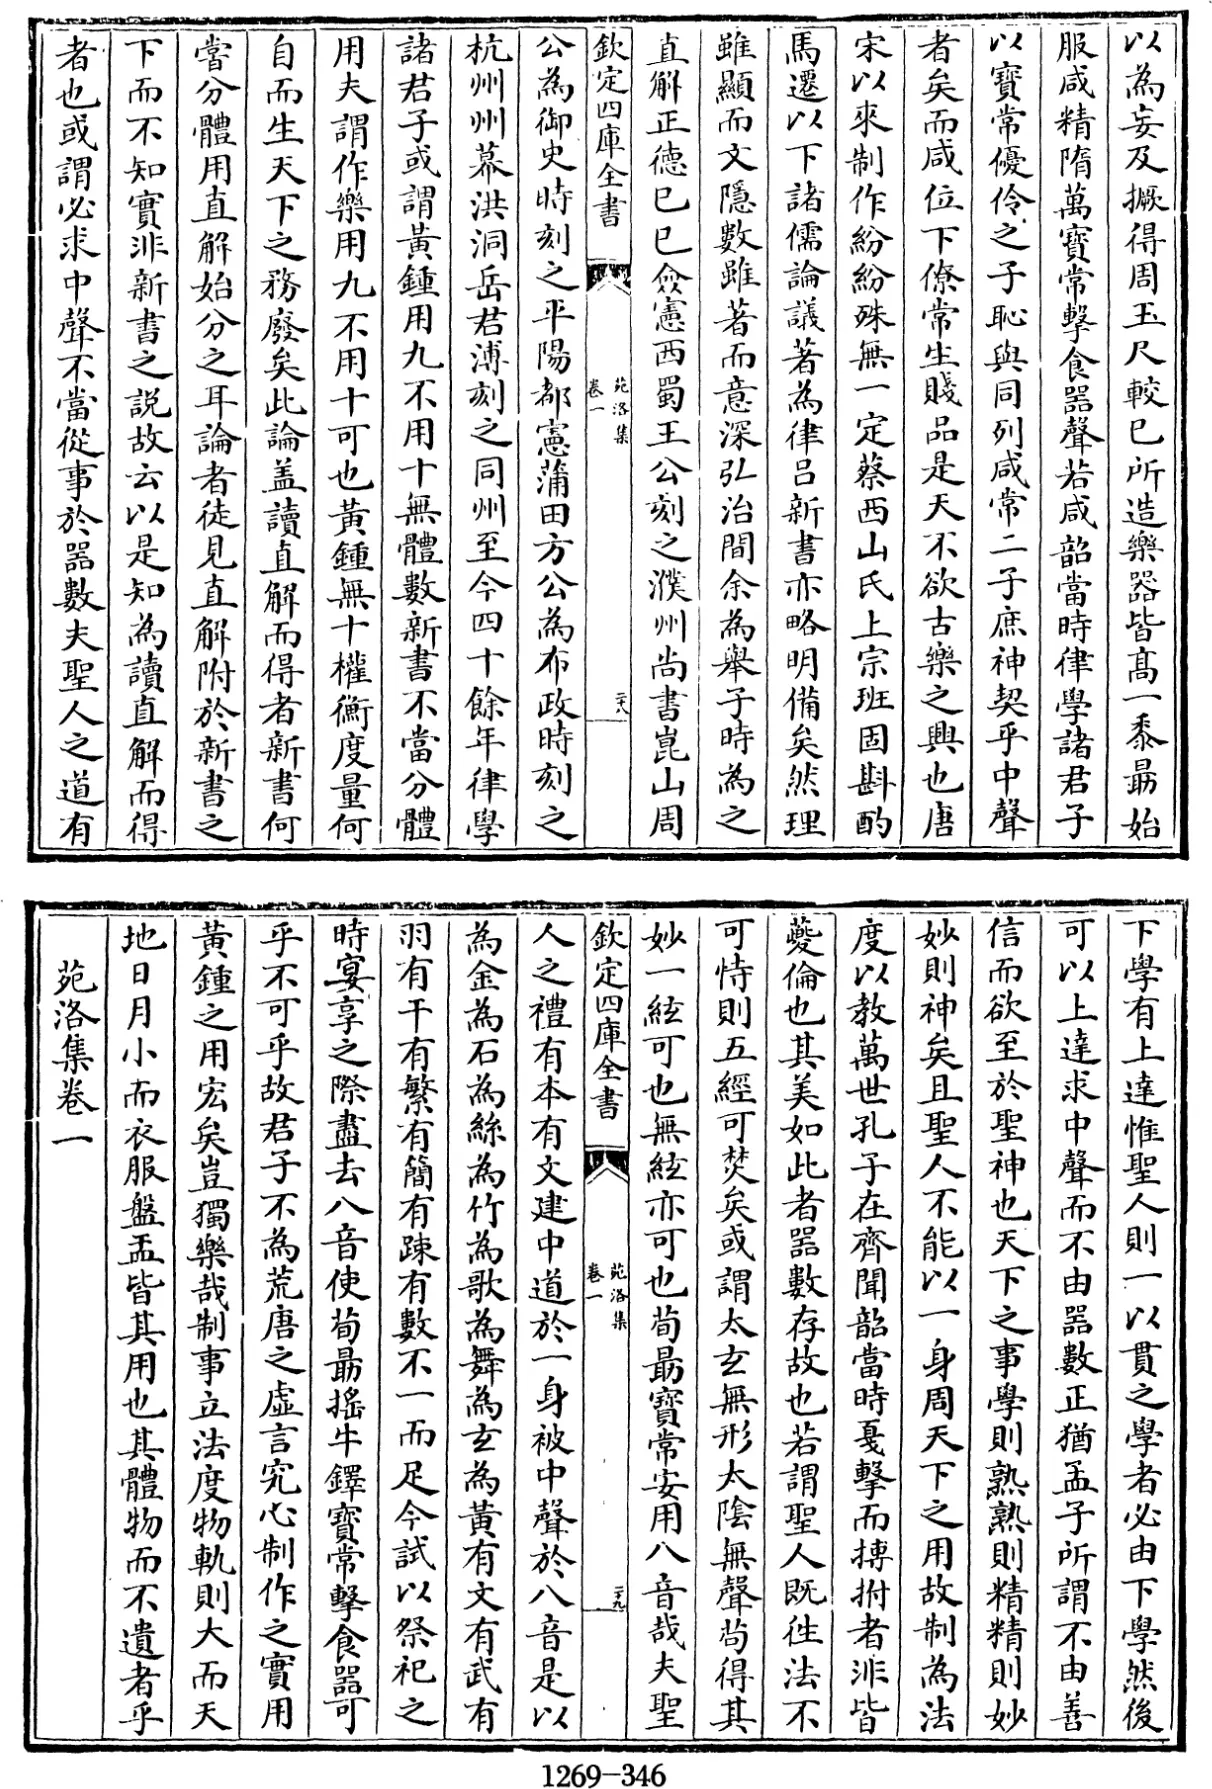 以為妄及撅得周玉尺較已所造樂器皆髙一黍朂始
服咸精隋萬寳常擊食器聲若咸韶當時律學諸君子
以寳常優伶之子恥與同列咸常二子庶神契乎中聲
者矣而咸位下僚常生賤品是天不欲古樂之興也唐
宋以來制作紛紛殊無一定蔡西山氏上宗班固斟酌
馬遷以下諸儒論議著為律吕新書亦略明備矣然理
雖顯而文隱數雖著而意深弘治間余為舉子時為之
直解正徳已巳僉憲西蜀王公刻之濮州尚書崑山周
欽定四庫全書
苑洛集
卷一
二八
公為御史時刻之平陽都憲蒲田方公為布政時刻之
杭州州幕洪洞岳君溥刻之同州至今四十餘年律學
諸君子或謂黃鍾用九不用十無體數新書不當分體
用夫謂作樂用九不用十可也黃鍾無十權衡度量何
自而生天下之務廢矣此論盖讀直解而得者新書何
嘗分體用直解始分之耳論者徒見直解附於新書之
下而不知實非新書之説故云以是知為讀直解而得
者也或謂必求中聲不當從事於器數夫聖人之道有
下學有上達惟聖人則一以貫之學者必由下學然後
可以上達求中聲而不由器數正猶孟子所謂不由善
信而欲至於聖神也天下之事學則熟熟則精精則妙
妙則神矣且聖人不能以一身周天下之用故制為法
度以教萬世孔子在齊聞韶當時戞擊而摶拊者非皆
夔倫也其美如此者器數存故也若謂聖人既徃法不
可恃則五經可焚矣或謂太玄無形太陰無聲茍得其
妙一絃可也無絃亦可也荀朂寳常安用八音哉夫聖
欽定四庫全書
苑洛集
卷一
二九
人之禮有本有文建中道於一身被中聲於八音是以
為金為石為絲為竹為歌為舞為玄為黃有文有武有
羽有干有繁有簡有踈有數不一而足今試以祭祀之
時宴享之際盡去八音使荀朂搖牛鐸寳常擊食器可
乎不可乎故君子不為荒唐之虛言究心制作之實用
黃鍾之用宏矣豈獨樂哉制事立法度物軌則大而天
地日月小而衣服盤盂皆其用也其體物而不遺者乎
苑洛集卷一
1269-346